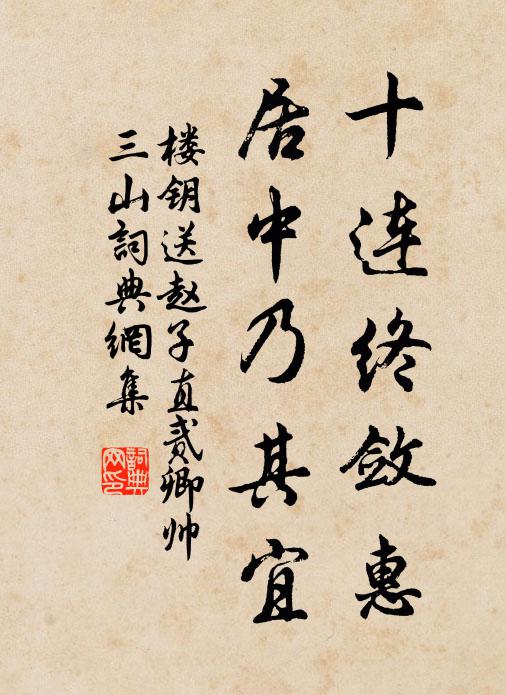 十连终敛惠
居中乃其宜
楼钥送赵子直贰卿帅
三山詞典網集
詞典網印